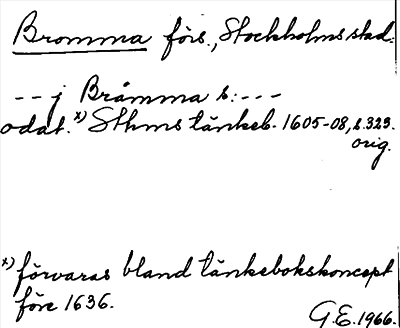 Bromma förs., Stockholms stad.
-- j Bråmma s: ---
odat. x) Sthms tänkeb. 1605-08, s. 323.
orig.
x) förvaras bland tänkebokskoncept
före 1636.
G.E. 1966.